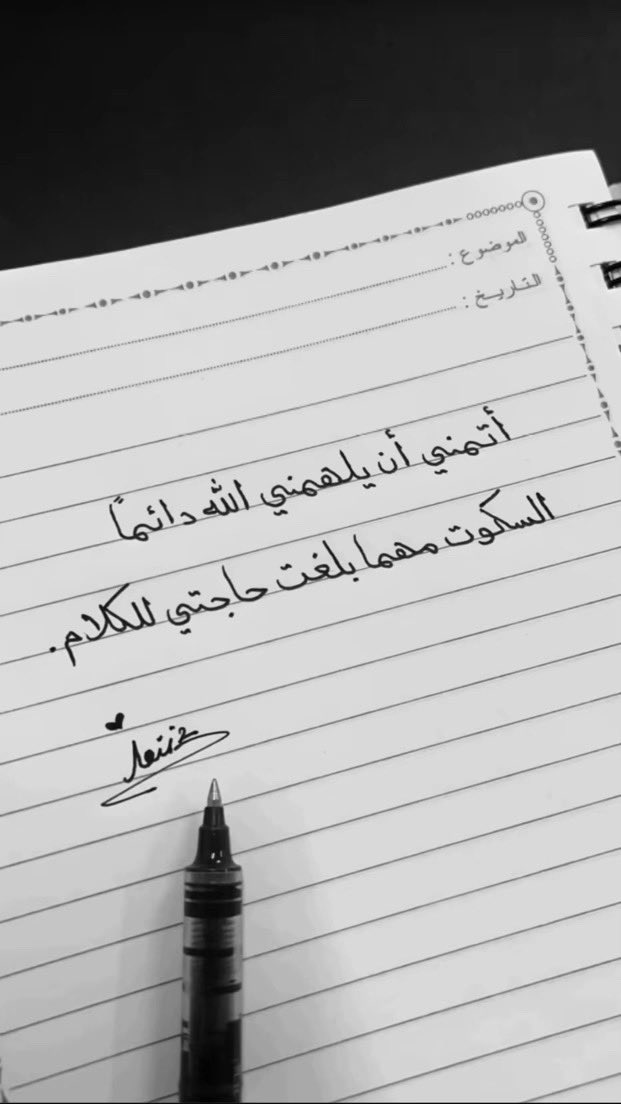 الموضوع :
التاريخ :
أتمني أن يلهمني الله دائماً
السكوت مهما بلغت حاجتي للكلام.